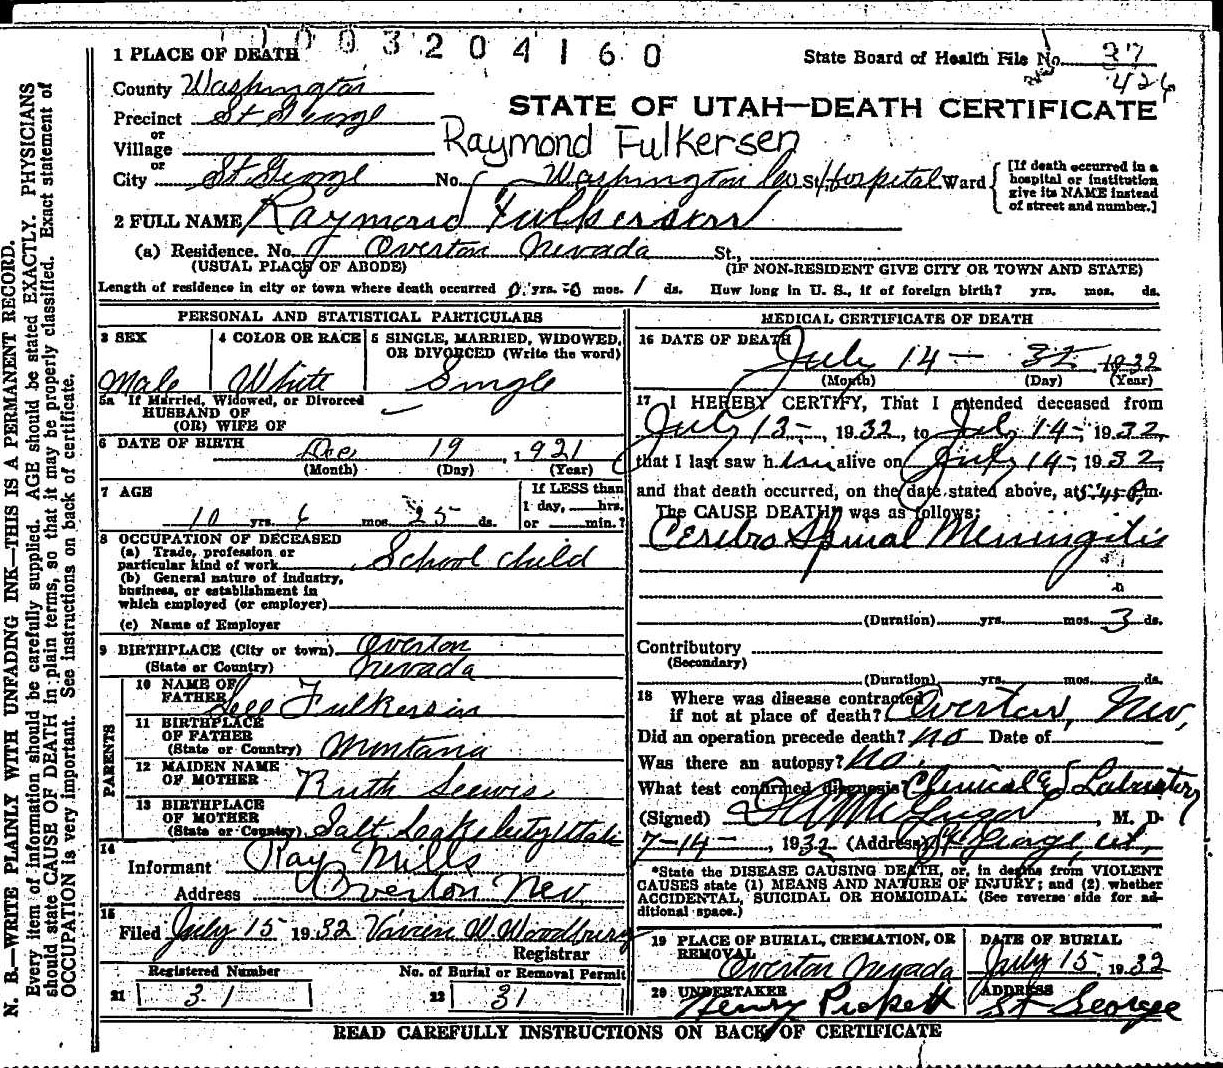 1003204160
1 PLACE OF DEATH
State Board of Health File No. 37
426
County Washington
STATE OF UTAH—DEATH CERTIFICATE
Precinct St George
or
Village
Raymond Fulkersen
or
City St George No. Washington Co St. Hospital Ward
[If death occurred in a hospital or institution give its NAME instead of street and number.]
2 FULL NAME Raymond Fulkerson
(a) Residence. No. Overton Nevada St.,
(USUAL PLACE OF ABODE) (IF NON-RESIDENT GIVE CITY OR TOWN AND STATE)
Length of residence in city or town where death occurred 0 yrs. 0 mos. 1 ds. How long in U. S., if of foreign birth? yrs. mos. ds.
PERSONAL AND STATISTICAL PARTICULARS
3 SEX 4 COLOR OR RACE 5 SINGLE, MARRIED, WIDOWED,
OR DIVORCED (Write the word)
Male White Single
5a If Married, Widowed, or Divorced
HUSBAND OF
(OR) WIFE OF
6 DATE OF BIRTH Dec 19, 1921
(Month) (Day) (Year)
7 AGE
If LESS than
1 day, hrs.
10 yrs. 6 mos. 25 ds. or min.?
8 OCCUPATION OF DECEASED
(a) Trade, profession or
particular kind of work School child
(b) General nature of industry,
business, or establishment in
which employed (or employer)
(c) Name of Employer
9 BIRTHPLACE (City or town) Overton
(State or Country) Nevada
PARENTS
10 NAME OF
FATHER Lee Fulkerson
11 BIRTHPLACE
OF FATHER
(State or Country) Montana
12 MAIDEN NAME
OF MOTHER Ruth
13 BIRTHPLACE
OF MOTHER
(State or Country) Salt Lake City Utah
14
Informant Ray Mills
Address Overton Nev.
15
Filed July 15 1932 W. Woodbury
Registrar
Registered Number No. of Burial or Removal Permit
21 31 22 31
MEDICAL CERTIFICATE OF DEATH
16 DATE OF DEATH
July 14 — 32 1932
(Month) (Day) (Year)
17 I HEREBY CERTIFY, That I attended deceased from
July 13-, 1932, to July 14-, 1932
that I last saw him alive on July 14-, 1932
and that death occurred, on the date stated above, at 5:45 P.m.
The CAUSE DEATH* was as follows:
Cerebro Spinal Meningitis
(Duration) yrs. mos. 3 ds.
Contributory
(Secondary)
(Duration) yrs. mos. ds.
18 Where was disease contracted
if not at place of death? Overton, Nev.
Did an operation precede death? no Date of
Was there an autopsy? no.
What test confirmed diagnosis Clinical & Laboratory
(Signed) McGregor, M. D.
7-14-, 1932 (Address) St George, Ut.
*State the DISEASE CAUSING DEATH, or, in deaths from VIOLENT
CAUSES state (1) MEANS AND NATURE OF INJURY; and (2) whether
ACCIDENTAL, SUICIDAL OR HOMICIDAL. (See reverse side for ad-
ditional space.)
19 PLACE OF BURIAL, CREMATION, OR
REMOVAL
Overton Nevada
DATE OF BURIAL
July 15, 1932
20 UNDERTAKER
Henry Pickett
ADDRESS
St George
READ CAREFULLY INSTRUCTIONS ON BACK OF CERTIFICATE
N. B.—WRITE PLAINLY WITH UNFADING INK—THIS IS A PERMANENT RECORD.
Every item of information should be carefully supplied. AGE should be stated EXACTLY. PHYSICIANS
should state CAUSE OF DEATH in plain terms, so that it may be properly classified. Exact statement of
OCCUPATION is very important. See instructions on back of certificate.